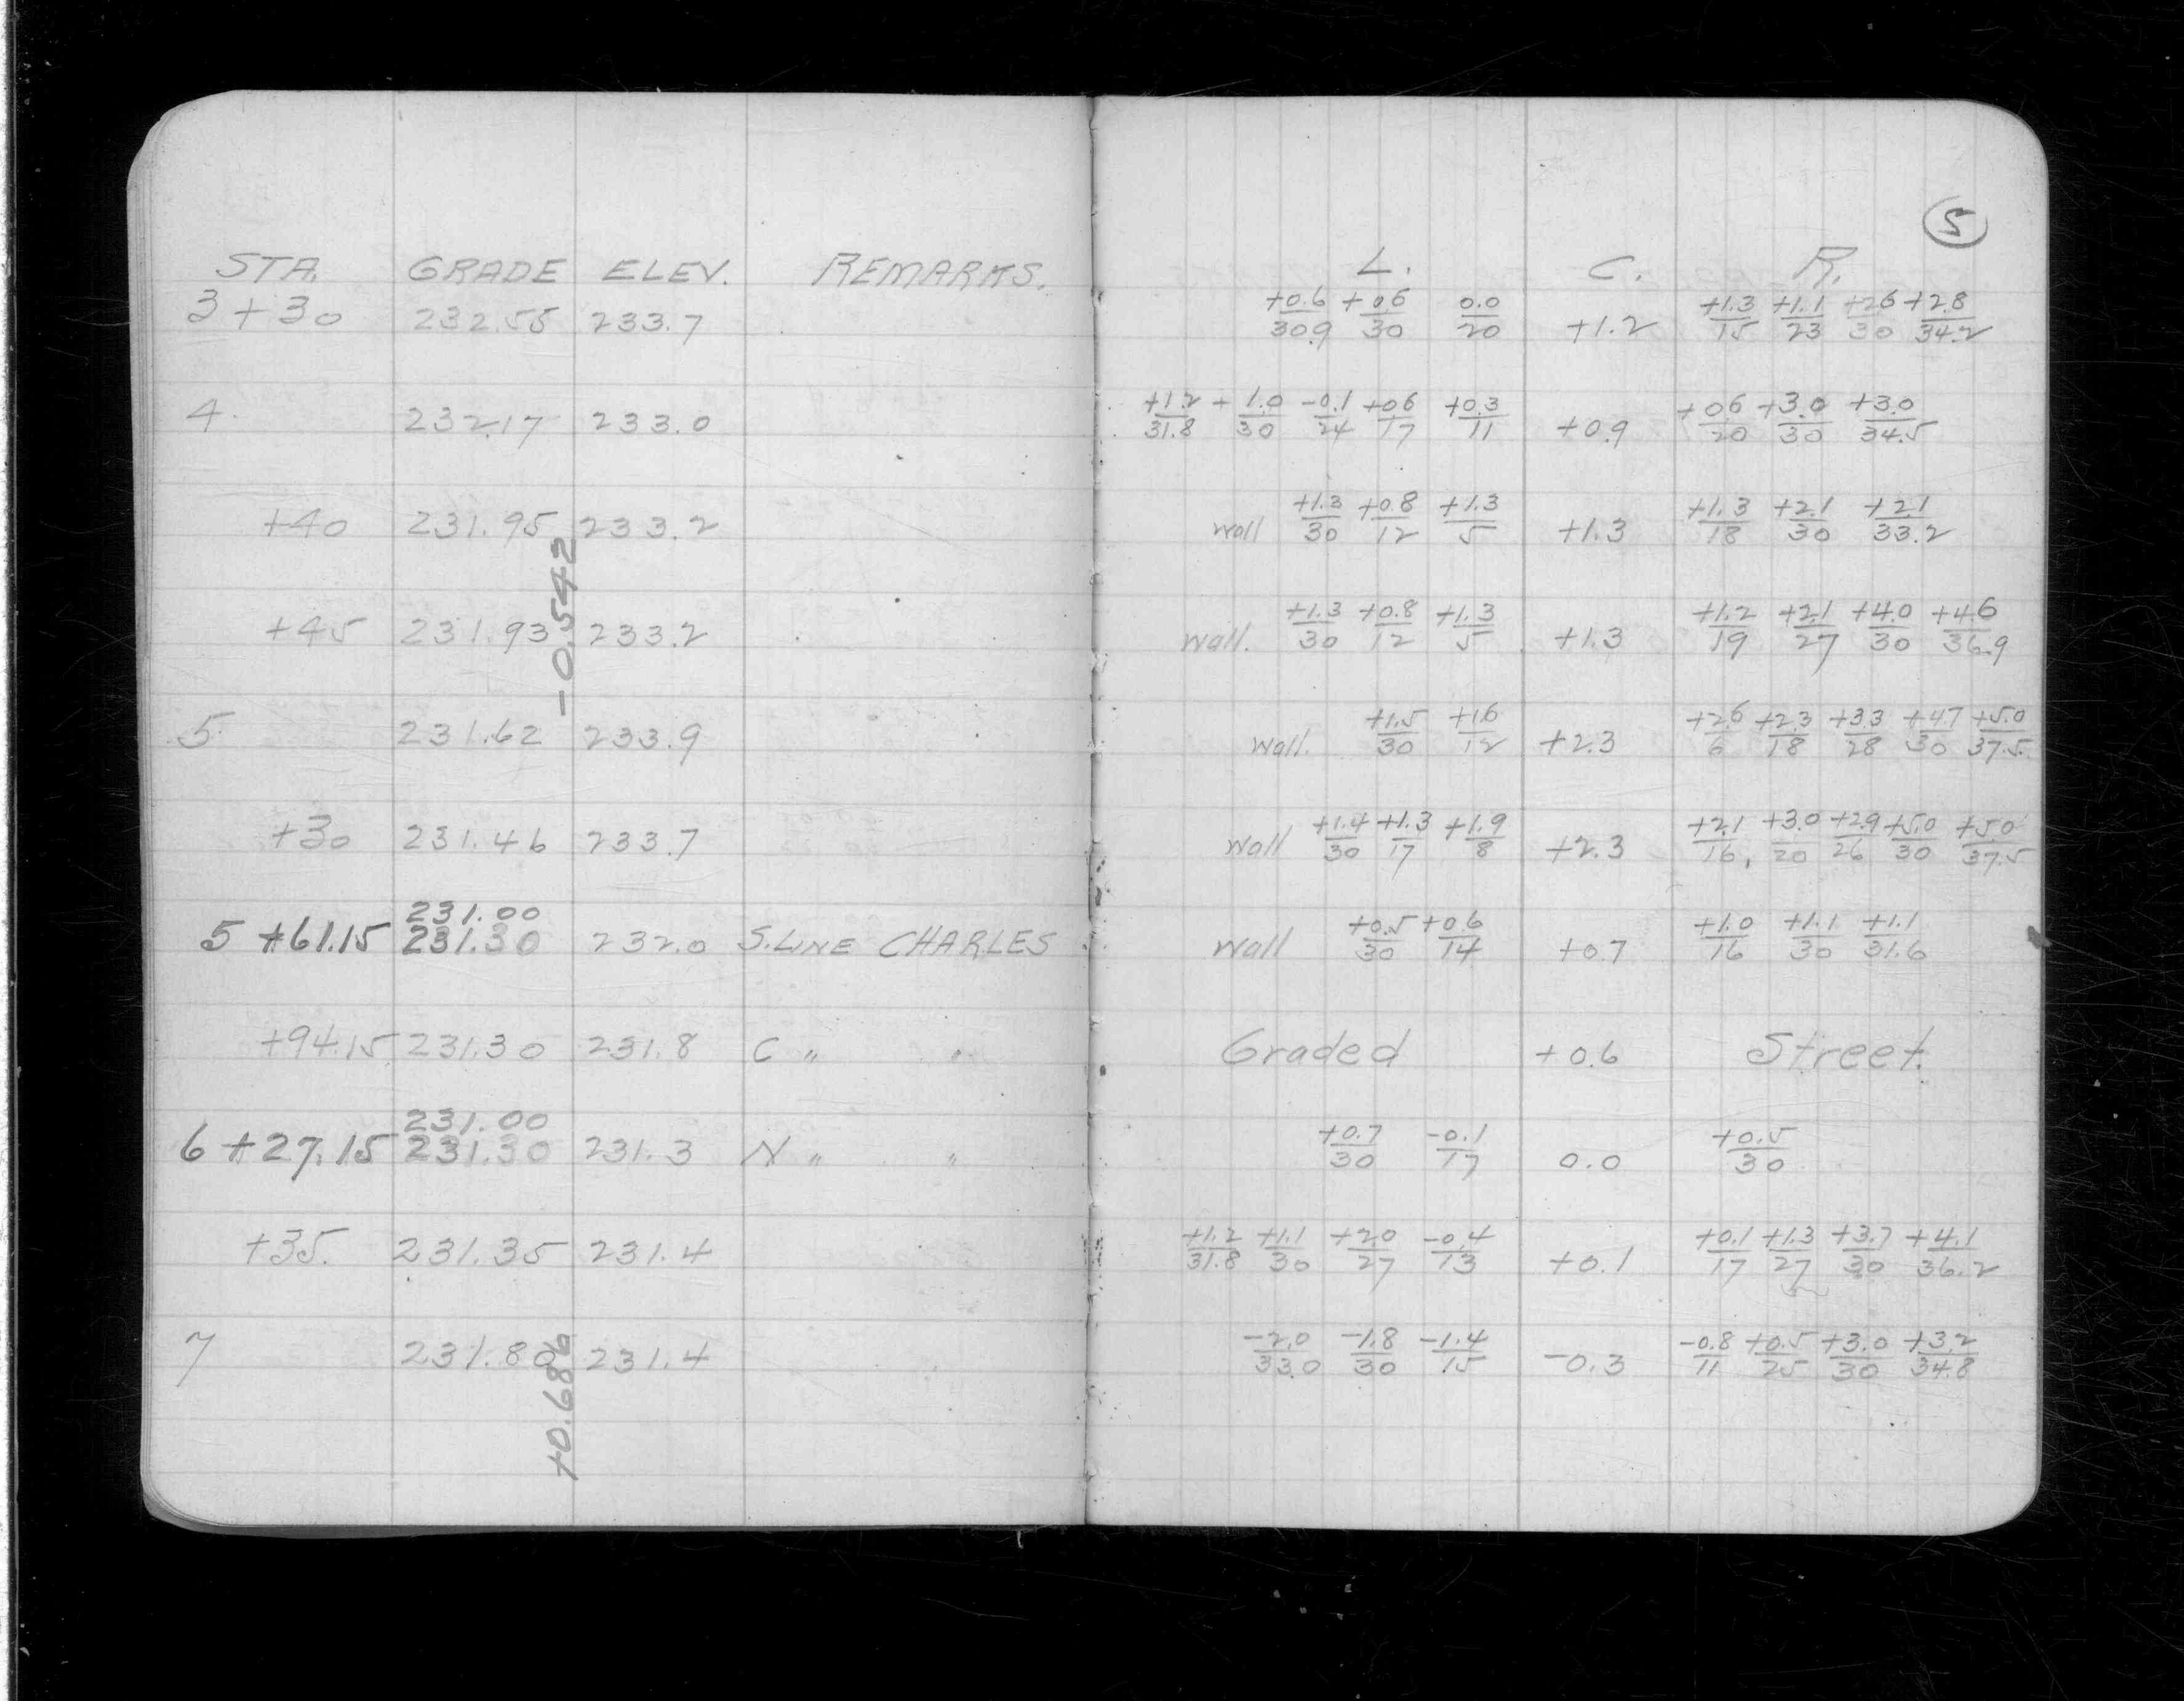 5
STA. GRADE ELEV. REMARKS. L. C. R.
3+30 232.55 233.7 +0.6/30.9 +0.6/30 0.0/20 +1.2 +1.3/15 +1.1/23 +2.6/30 +2.8/34.2
4 232.17 233.0 +1.2/31.8 +1.0/30 -0.1/24 +0.6/17 +0.3/11 +0.9 +0.6/20 +3.0/30 +3.0/34.5
+40 231.95 233.2 Wall +1.3/30 +0.8/12 +1.3/5 +1.3 +1.3/18 +2.1/30 +2.1/33.2
-0.542
+45 231.93 233.2 Wall. +1.3/30 +0.8/12 +1.3/5 +1.3 +1.2/19 +2.1/27 +4.0/30 +4.6/36.9
5 231.62 233.9 Wall. +1.5/30 +1.6/12 +2.3 +2.6/6 +2.3/18 +3.3/28 +4.7/30 +5.0/37.5
+30 231.46 233.7 Wall +1.4/30 +1.3/17 +1.9/8 +2.3 +2.1/16 +3.0/20 +2.9/26 +5.0/30 +5.0/37.5
231.00
5 +61.15 231.30 232.0 S. LINE CHARLES Wall +0.5/30 +0.6/14 +0.7 +1.0/16 +1.1/30 +1.1/31.6
+94.15 231.30 231.8 C " " Graded +0.6 Street.
231.00
6 +27.15 231.30 231.3 N " " +0.7/30 -0.1/17 0.0 +0.5/30
+35. 231.35 231.4 +1.2/31.8 +1.1/30 +2.0/27 -0.4/13 +0.1 +0.1/17 +1.3/27 +3.7/30 +4.1/36.2
7 231.80 231.4 -2.0/33.0 -1.8/30 -1.4/15 -0.3 -0.8/11 +0.5/25 +3.0/30 +3.2/34.8
+0.686